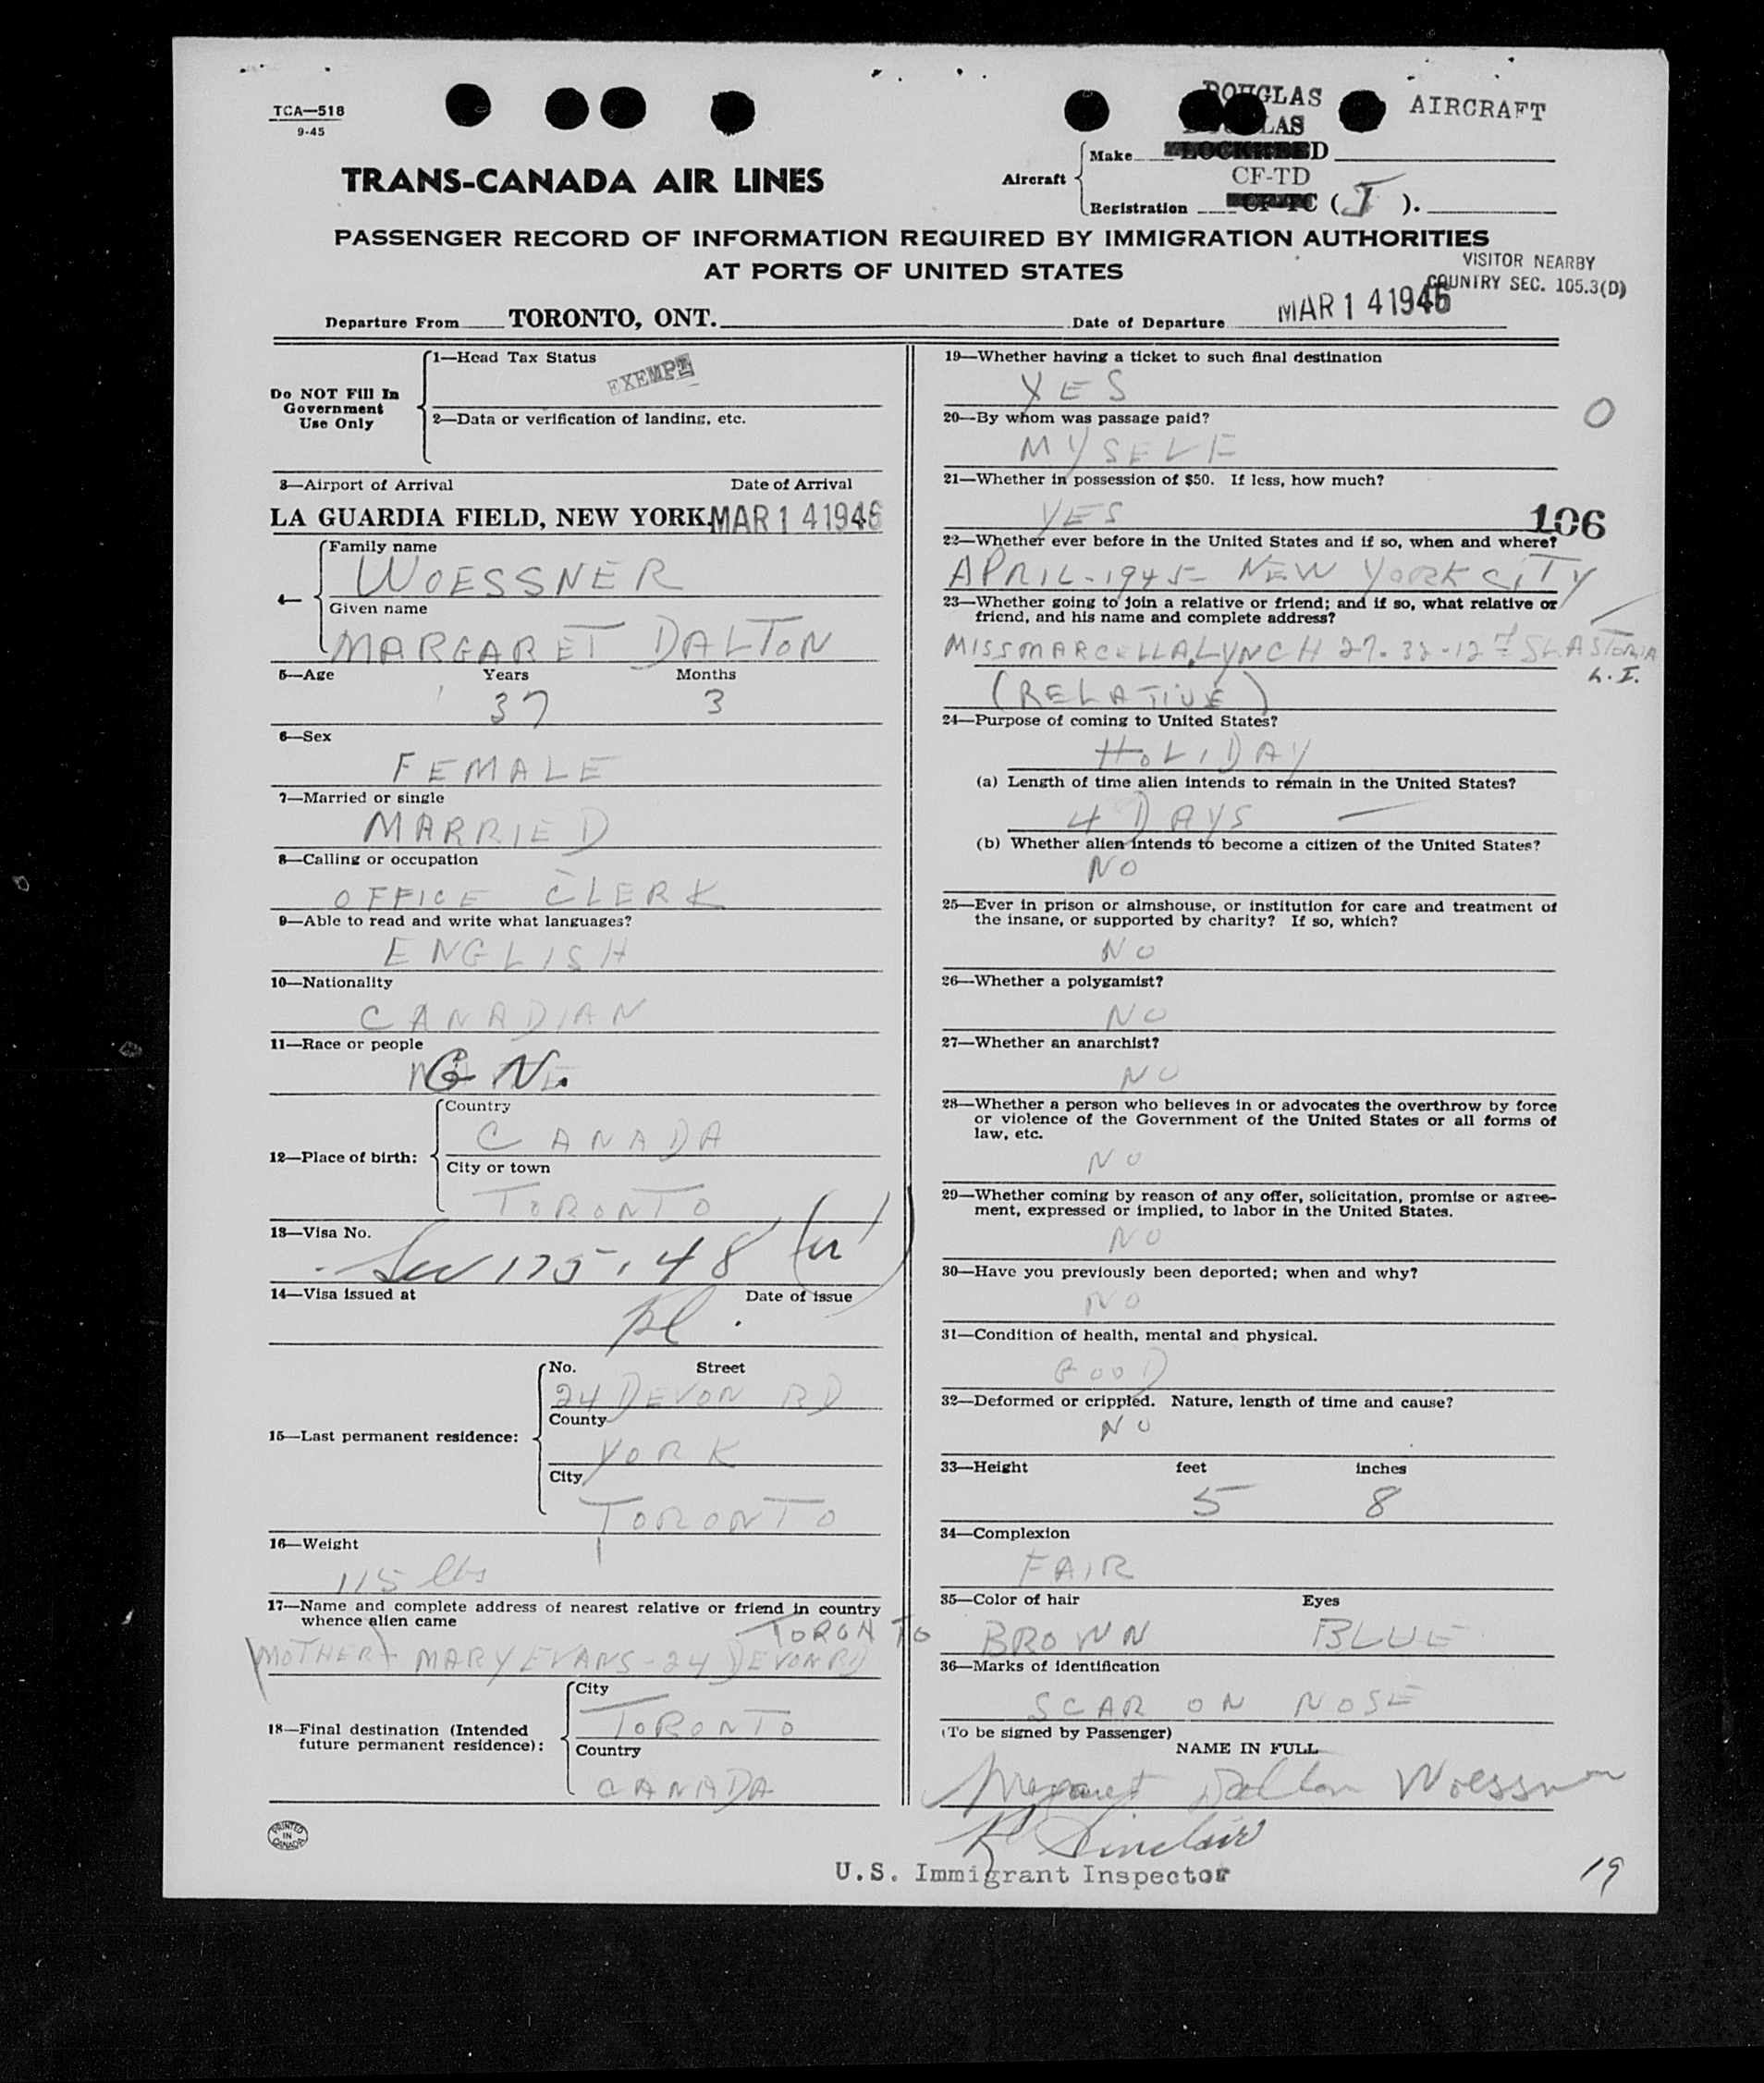 TCA—518
9-45
DOUGLAS AIRCRAFT
TRANS-CANADA AIR LINES
Aircraft
Make LOCKHEED
CF-TD
Registration CF-TC ( T ).
PASSENGER RECORD OF INFORMATION REQUIRED BY IMMIGRATION AUTHORITIES
AT PORTS OF UNITED STATES
VISITOR NEARBY
COUNTRY SEC. 105.3(D)
Departure From TORONTO, ONT. Date of Departure MAR 14 1946
Do NOT Fill In
Government
Use Only
1—Head Tax Status
EXEMPT
2—Data or verification of landing, etc.
3—Airport of Arrival Date of Arrival
LA GUARDIA FIELD, NEW YORK. MAR 14 1946
4—
Family name
WOESSNER
Given name
MARGARET DALTON
5—Age Years Months
37 3
6—Sex
FEMALE
7—Married or single
MARRIED
8—Calling or occupation
OFFICE CLERK
9—Able to read and write what languages?
ENGLISH
10—Nationality
CANADIAN
11—Race or people
G N.
12—Place of birth:
Country
CANADA
City or town
TORONTO
13—Visa No.
Sec 175.48
14—Visa issued at Date of issue
15—Last permanent residence:
No. Street
24 DEVON RD
County
YORK
City
TORONTO
16—Weight
115 lbs
17—Name and complete address of nearest relative or friend in country
whence alien came
TORONTO
(MOTHER) MARY EVANS - 24 DEVON RD
18—Final destination (Intended
future permanent residence):
City
TORONTO
Country
CANADA
PRINTED
IN
CANADA
19—Whether having a ticket to such final destination
YES
20—By whom was passage paid?
MYSELF
21—Whether in possession of $50. If less, how much?
YES
106
22—Whether ever before in the United States and if so, when and where?
APRIL - 1945 - NEW YORK CITY
23—Whether going to join a relative or friend; and if so, what relative or
friend, and his name and complete address?
MISS MARCELLA LYNCH 27-32-12 St. ASTORIA
L.I.
(RELATIVE)
24—Purpose of coming to United States?
HOLIDAY
(a) Length of time alien intends to remain in the United States?
4 DAYS
(b) Whether alien intends to become a citizen of the United States?
NO
25—Ever in prison or almshouse, or institution for care and treatment of
the insane, or supported by charity? If so, which?
NO
26—Whether a polygamist?
NO
27—Whether an anarchist?
NO
28—Whether a person who believes in or advocates the overthrow by force
or violence of the Government of the United States or all forms of
law, etc.
NO
29—Whether coming by reason of any offer, solicitation, promise or agree-
ment, expressed or implied, to labor in the United States.
NO
30—Have you previously been deported; when and why?
NO
31—Condition of health, mental and physical.
GOOD
32—Deformed or crippled. Nature, length of time and cause?
NO
33—Height feet inches
5 8
34—Complexion
FAIR
35—Color of hair Eyes
BROWN BLUE
36—Marks of identification
SCAR ON NOSE
(To be signed by Passenger)
NAME IN FULL
Margaret Dalton Woessner
Sinclair
U.S. Immigrant Inspector
19